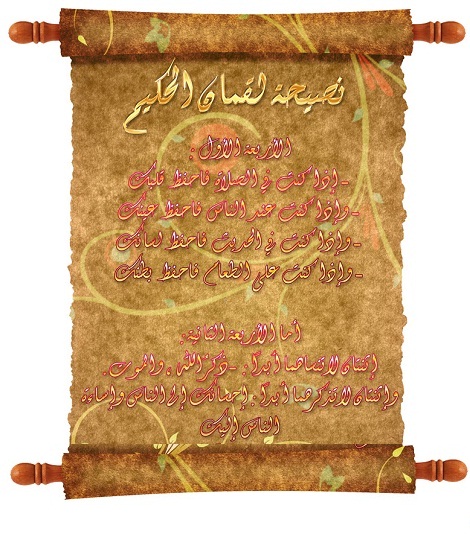 نصيحة لقمان الحكيم
الأربعة الأول :
- إذا كنت في الصلاة فاحفظ قلبك
- وإذا كنت عند الناس فاحفظ عينك
- وإذا كنت في الحديث فاحفظ لسانك
- وإذا كنت على الطعام فاحفظ بطنك
أما الأربعة الثانية.
إثنتان لا تنساهما أبداً : - ذكرُ الله , والموت .
وإثنتان لا تذكرهما أبداً : إحسانك إلى الناس وإساءة
الناس إليك